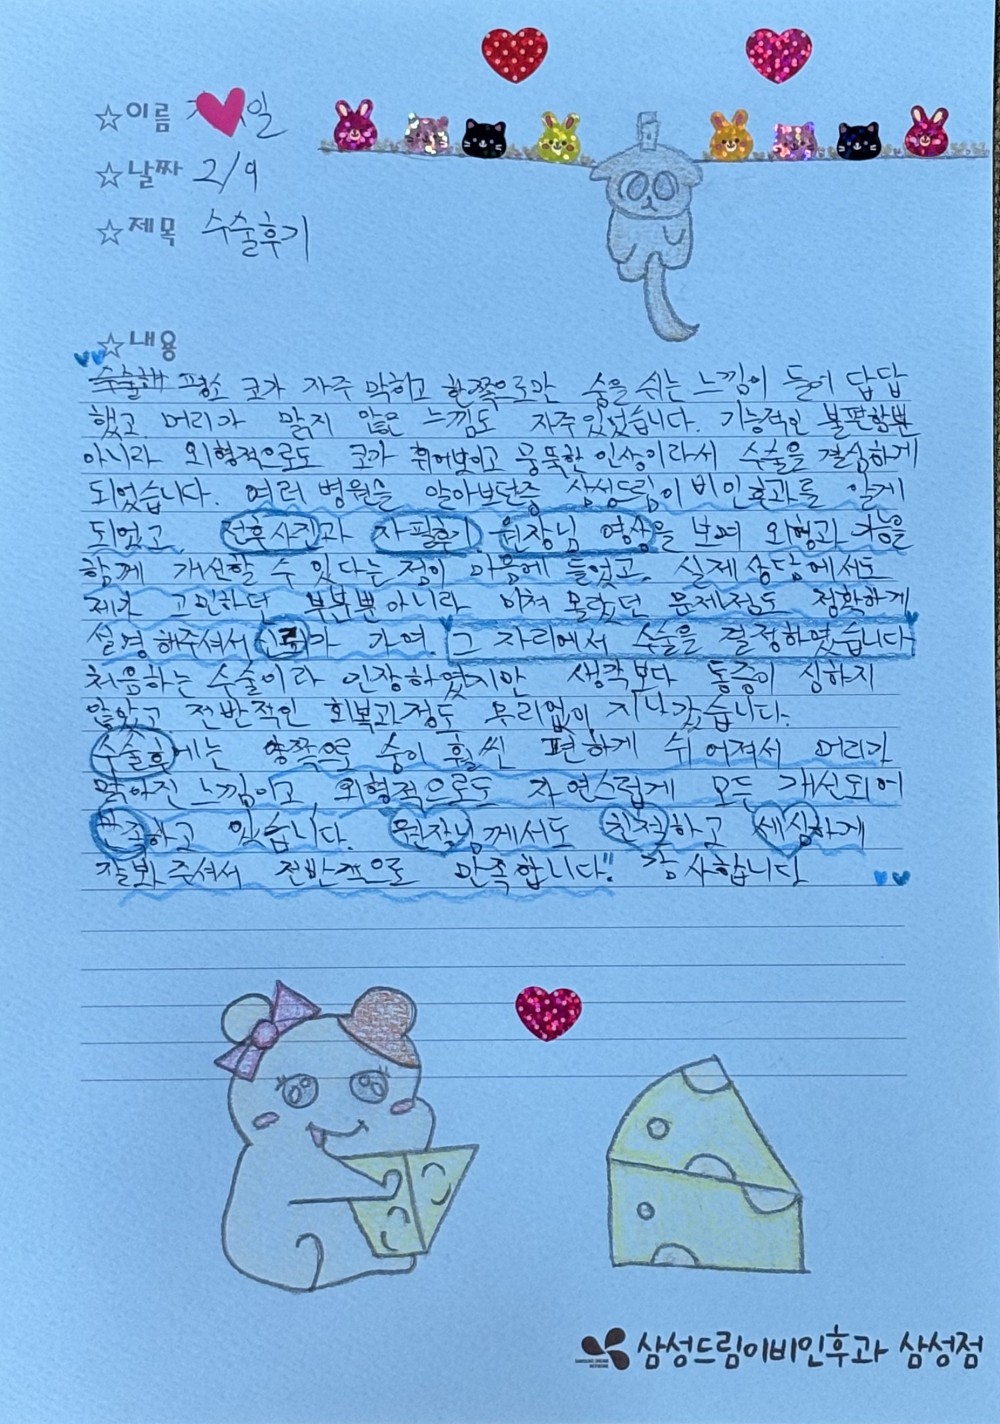 ☆이름 일
☆날짜 2/9
☆제목 수술후기
☆내용
수술해 평소 코가 자주 막히고 한쪽으로만 숨을 쉬는 느낌이 들어 답답
했고, 머리가 맑지 않은 느낌도 자주있었습니다. 기능적인 불편함뿐
아니라 외형적으로도 코가 휘어보이고 뭉뚝한 인상이라서 수술을 결심하게
되었습니다. 여러 병원을 알아보던중 삼성드림이비인후과를 알게
되었고, 전후사진과 자필후기 원장님 영상을 보며 외형과 기능을
함께 개선할 수 있다는 점이 마음에 들었고, 실제 상담에서도
제가 고민하던 부분뿐아니라 미쳐 몰랐던 문제점도 정확하게
설명해주셔서 신뢰가 가여. 그 자리에서 수술을 결정하였습니다
처음하는 수술이라 긴장하였지만 생각보다 통증이 심하지
않았고 전반적인 회복과정도 무리없이 지나갔습니다.
수술후에는 양쪽으로 숨이 훨씬 편하게 쉬어져서 머리가
맑아진 느낌이고, 외형적으로도 자연스럽게 모든 개선되어
만족하고 있습니다. 원장님께서도 친절하고 세심하게
잘봐주셔서 전반적으로 만족합니다" 감사합니다
삼성드림이비인후과 삼성점